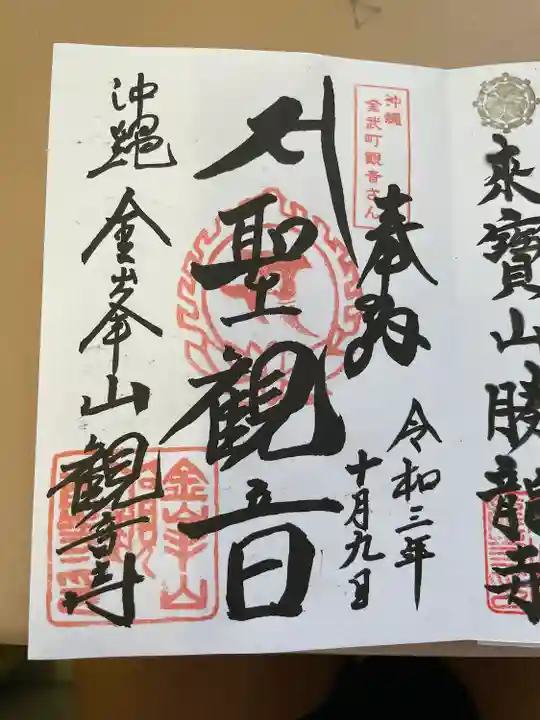 來寳山勝龍寺
沖縄
金武町観音さん
奉拝
令和三年
十月九日
聖観音
沖縄 金峯山観音寺
金峯山